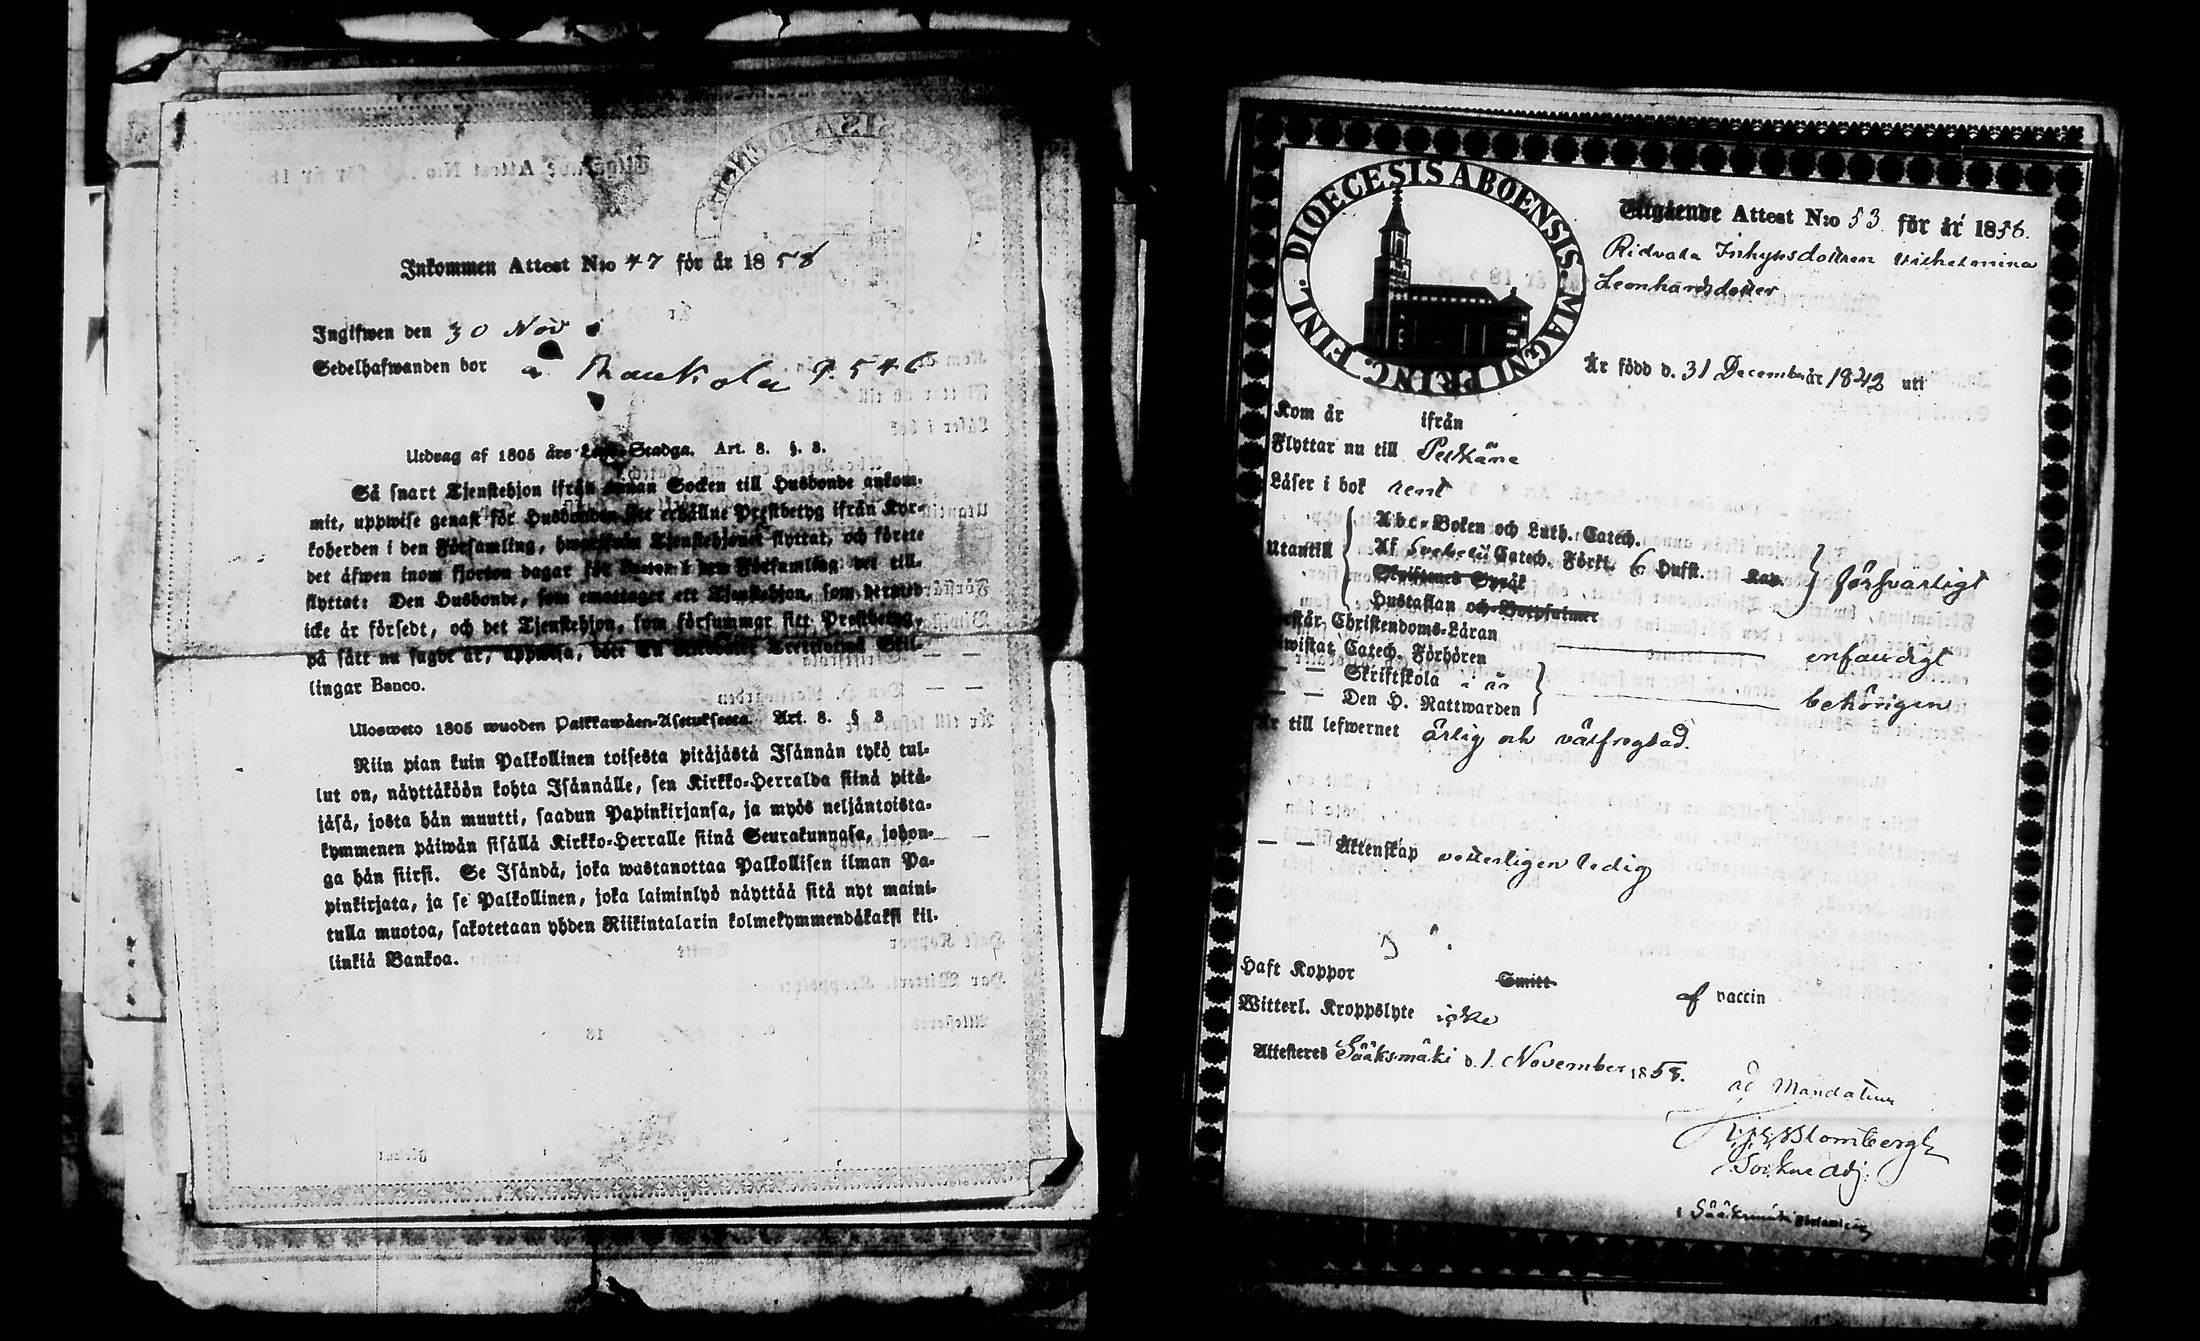 Inkommen Attest N:o 47 för år 1858
Ingifwen den 30 Nov
Sedelhafwanden bor à Raukola P. 546
Utdrag af 1805 års Lego-Stadga. Art. 8. §. 3.
Så snart Tjenstehjon ifrån annan Socken till Husbonde ankom-
mit, uppwise genast för Husbonden sitt erhållne Prestbetyg ifrån Kyr-
koherden i den Församling, hwarifrån Tjenstehjonet flyttat, och förete
det äfwen inom fjorton dagar för Pastor i den Församling det till-
flyttat: Den Husbonde, som emottager ett Tjenstehjon, som dermed
icke är försedt, och det Tjenstehjon, som försummar sitt Prestbetyg,
på sätt nu sagdt är, uppwisa, böte En Riksdaler Trettiotwå Skil-
lingar Banco.
Ulosweto 1805 wuoden Palkkawäen-Asetuksesta. Art. 8. § 3
Niin pian kuin Palkollinen toisesta pitäjästä Isännän tykö tul-
lut on, näyttäköön kohta Isännälle, sen Kirkko-Herralda siinä pitä-
jäsä, josta hän muutti, saadun Papinkirjansa, ja myös neljäntoista-
kymmenen päiwän sisällä Kirkko-Herralle siinä Seurakunnasa, johon-
ga hän siirsi. Se Isändä, joka wastanottaa Palkollisen ilman Pa-
pinkirjata, ja se Palkollinen, joka laiminlyö näyttää sitä nyt maini-
tulla muotoa, sakotetaan yhden Riikintalarin kolmekymmendäkaksi kil-
linkiä Bankoa.
DIOECESIS ABOENSIS. MAGNI PRINC. FINL.
Utgående Attest N:o 53 för år 1858.
Ridvala Inhysesdottren Wilhelmina
Leonhardsdotter
Är född d. 31 December år 1842 uti
Kom år ifrån
Flyttar nu till Pelkäne
Läser i bok rent
Utantill
Abc-Boken och Luth. Catech.
Af Svebelii Catech. Förkl. 6 Hufst. Kap.
Skriftenes Språk
Hustaflan och Botpsalmer
försvarligt
Förstår Christendoms-Läran enfaldigt
Bewistat Catech. Förhören
— — Skriftskola i år
— — Den H. Nattwarden
behörigen
Är till lefwernet ärlig och välfrejdad.
— — Äktenskap vetterligen ledig
Haft Koppor Smitt af vaccin
Witterl. Kroppslyte icke
Attesteras Sääksmäki d. 1. November 1858.
ad Mandatum
Blombergh
Sockne adj.
i Sääksmäki